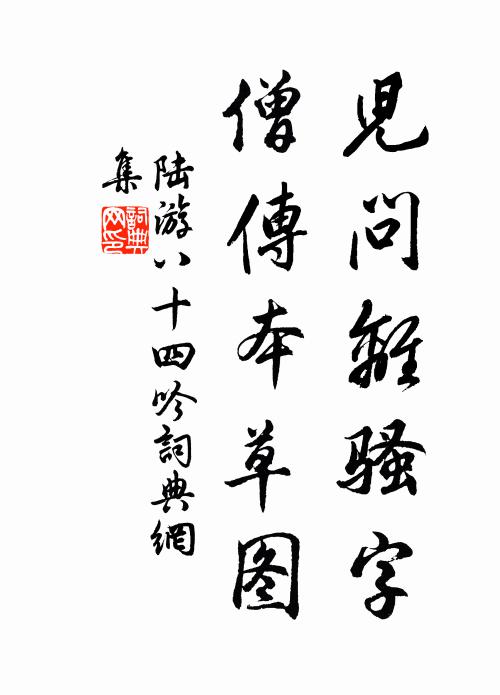 兒問離騷字
僧傳本草图
陆游八十四吟詞典網
集
詞典
网印